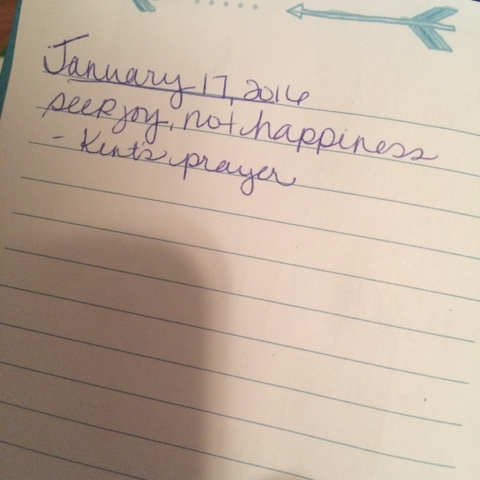 January 17, 2016
seek joy, not happiness
- Kent's prayer